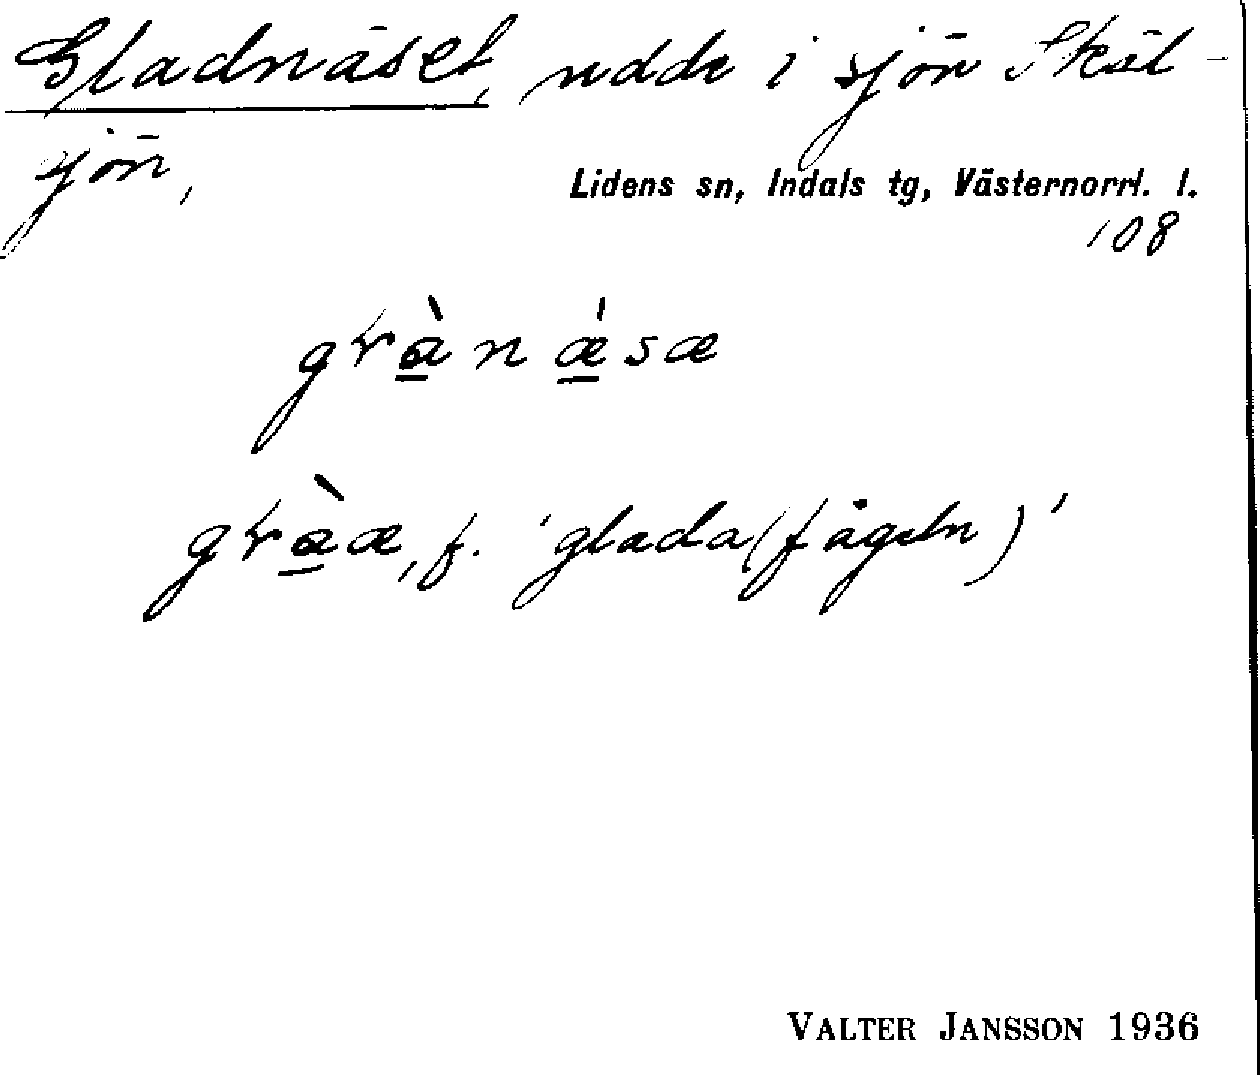 Gladnäset, udde i sjön Skäl-
sjön,
Lidens sn, Indals tg, Västernorrl. l.
108
grà̱nǽ̱sæ
grà̱æ, f. 'glada (fågeln)'
VALTER JANSSON 1936